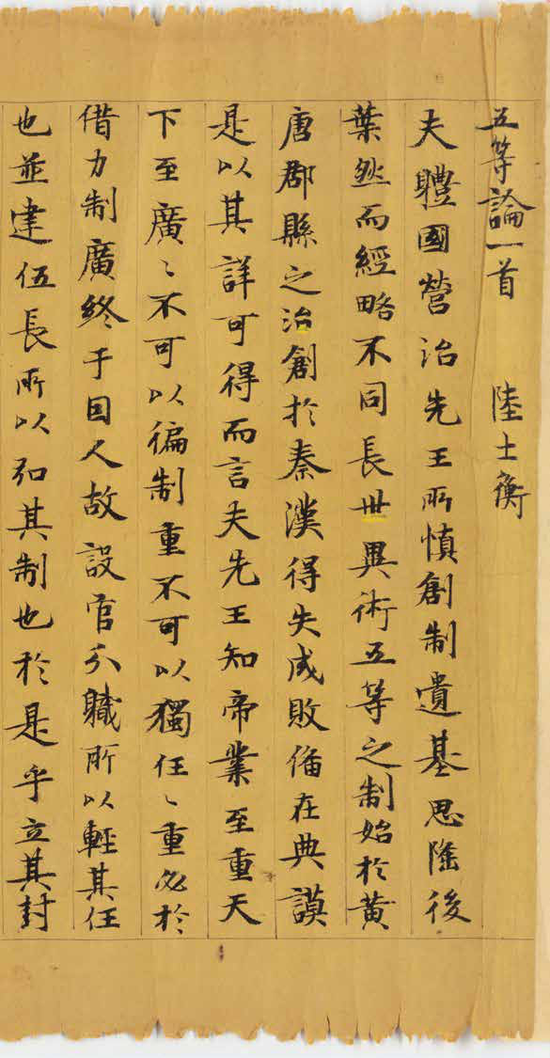 五等論一首 陸士衡
夫軆國營治先王所慎創制遺基思隆後
葉然而經略不同長世異術五等之制始於黃
唐郡縣之治創於秦漢得失成敗俻在典謨
是以其詳可得而言夫先王知帝業至重天
下至廣〻不可以徧制重不可以獨任〻重必於
借力制廣終于因人故設官分軄所以輕其任
也並建伍長所以弘其制也於是乎立其封